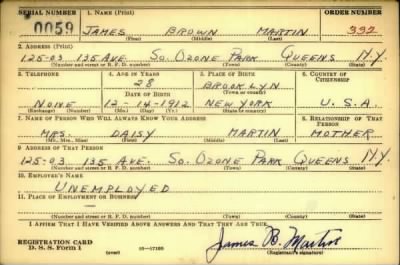 SERIAL NUMBER 1. NAME (Print) ORDER NUMBER
0059 JAMES BROWN MARTIN 332
(First) (Middle) (Last)
2. ADDRESS (Print)
125-03 135 AVE. SO. OZONE PARK QUEENS N.Y.
(Number and street or R. F. D. number) (Town) (County) (State)
3. TELEPHONE 4. AGE IN YEARS 5. PLACE OF BIRTH 6. COUNTRY OF CITIZENSHIP
28 BROOKLYN
DATE OF BIRTH (Town or county)
NONE 12-14-1912 NEW YORK U.S.A.
(Exchange) (Number) (Mo.) (Day) (Yr.) (State or country)
7. NAME OF PERSON WHO WILL ALWAYS KNOW YOUR ADDRESS 8. RELATIONSHIP OF THAT PERSON
MRS. DAISY MARTIN MOTHER
(Mr., Mrs., Miss) (First) (Middle) (Last)
9. ADDRESS OF THAT PERSON
125-03 135 AVE. SO. OZONE PARK QUEENS N.Y.
(Number and street or R. F. D. number) (Town) (County) (State)
10. EMPLOYER'S NAME
UNEMPLOYED
11. PLACE OF EMPLOYMENT OR BUSINESS
(Number and street or R. F. D. number) (Town) (County) (State)
I AFFIRM THAT I HAVE VERIFIED ABOVE ANSWERS AND THAT THEY ARE TRUE.
REGISTRATION CARD
D. S. S. Form 1 (over) 16-17105 James B. Martin
(Registrant's signature)